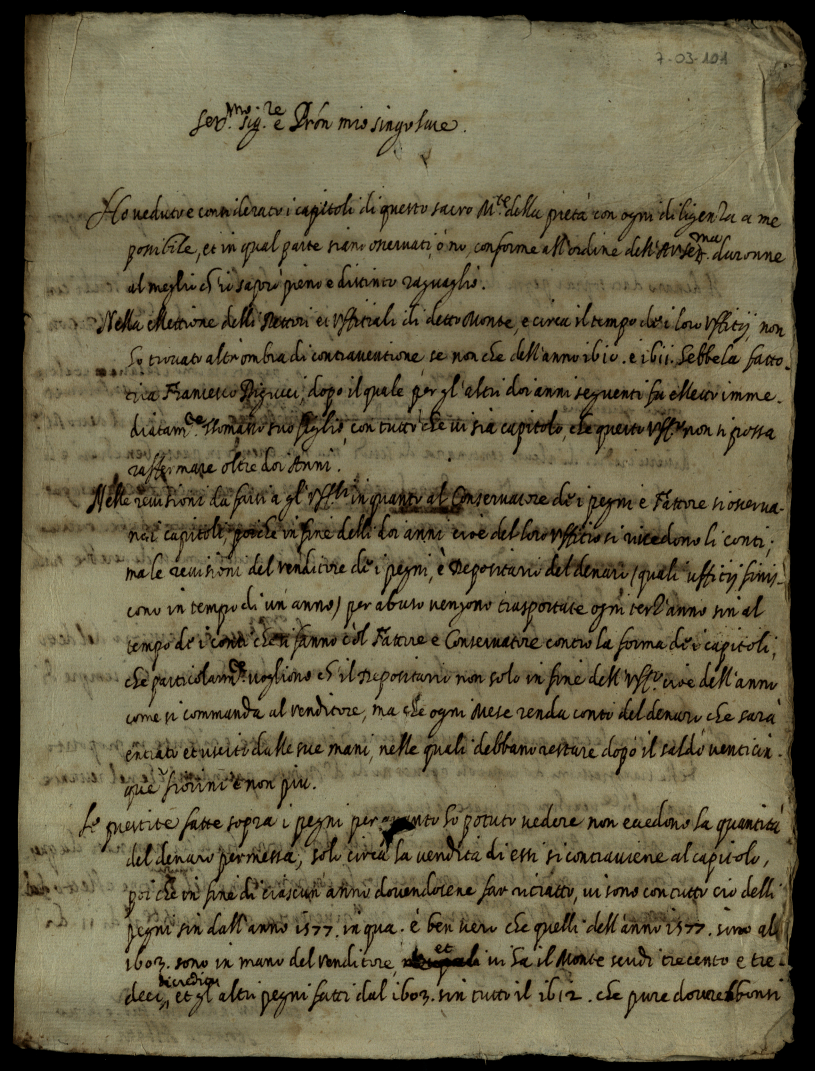 7-03-101
Ser.mo Sig.re e Prôn mio singolare.
Ho veduto e considerato i capitoli di questo sacro M.te della pietà con ogni diligenza a me
possibile, et in qual parte siano osservati, ò no, conforme all'ordine dell' A.V.Ser.ma daronne
al meglio ch'io saprò pieno e distinto raguaglio.
Nella elettione delli Rettori et Uffitiali di detto Monte, e circa il tempo de i loro Uffitij, non
hò trovato altr'ombra di contraventione se non che dell'anno 1610. e 1611. hebbe la fatto-
ria Francesco, dopo il quale per gl'altri doi anni seguenti fu eletto imme-
diatam.te Thomasso suo figlio, con tutto che vi sia capitolo, che questo Uff.o non si possa
raffermare oltre doi Anni.
Nelle revisioni da farsi a gl'Uff.li in quanto al Conservatore de i pegni e Fattore si osserva-
no i capitoli, poiche in fine delli doi anni cioè del loro Uffitio si rivedono li conti;
ma le revisioni del venditore de i pegni, è Depositario del denaro (quali ufficij finis-
cono in tempo di un'anno) per abuso vengono trasportate ogni terz'anno sin al
tempo de i conti che si fanno col Fattore e Conservatore contro la forma de i capitoli,
che particolarm.te vogliono ch'il Depositario non solo in fine dell'Uff.o cioè dell'anno
come si commanda al venditore, ma che ogni Mese renda conto del denaro che sarà
entrato et uscito dalle sue mani, nelle quali debbano restare dopò il saldo venticin-
que fiorini e non più.
Le prestite fatte sopra i pegni per quanto hò potuto vedere non eccedono la quantità
del denaro permessa, solo circa la vendita di essi si contraviene al capitolo,
poi che in fine di ciascun anno dovendosene far ritratto, vi sono con tutto ciò delli
pegni sin dall'anno 1577. in qua. è ben vero che quelli dell'anno 1577. sino al
1603. sono in mano del venditore, et vi ha il Monte scudi trecento e tre-
deci di credito, et gl'altri pegni fatti dal 1603. sin tutto il 1612. che pure dovrebbonsi